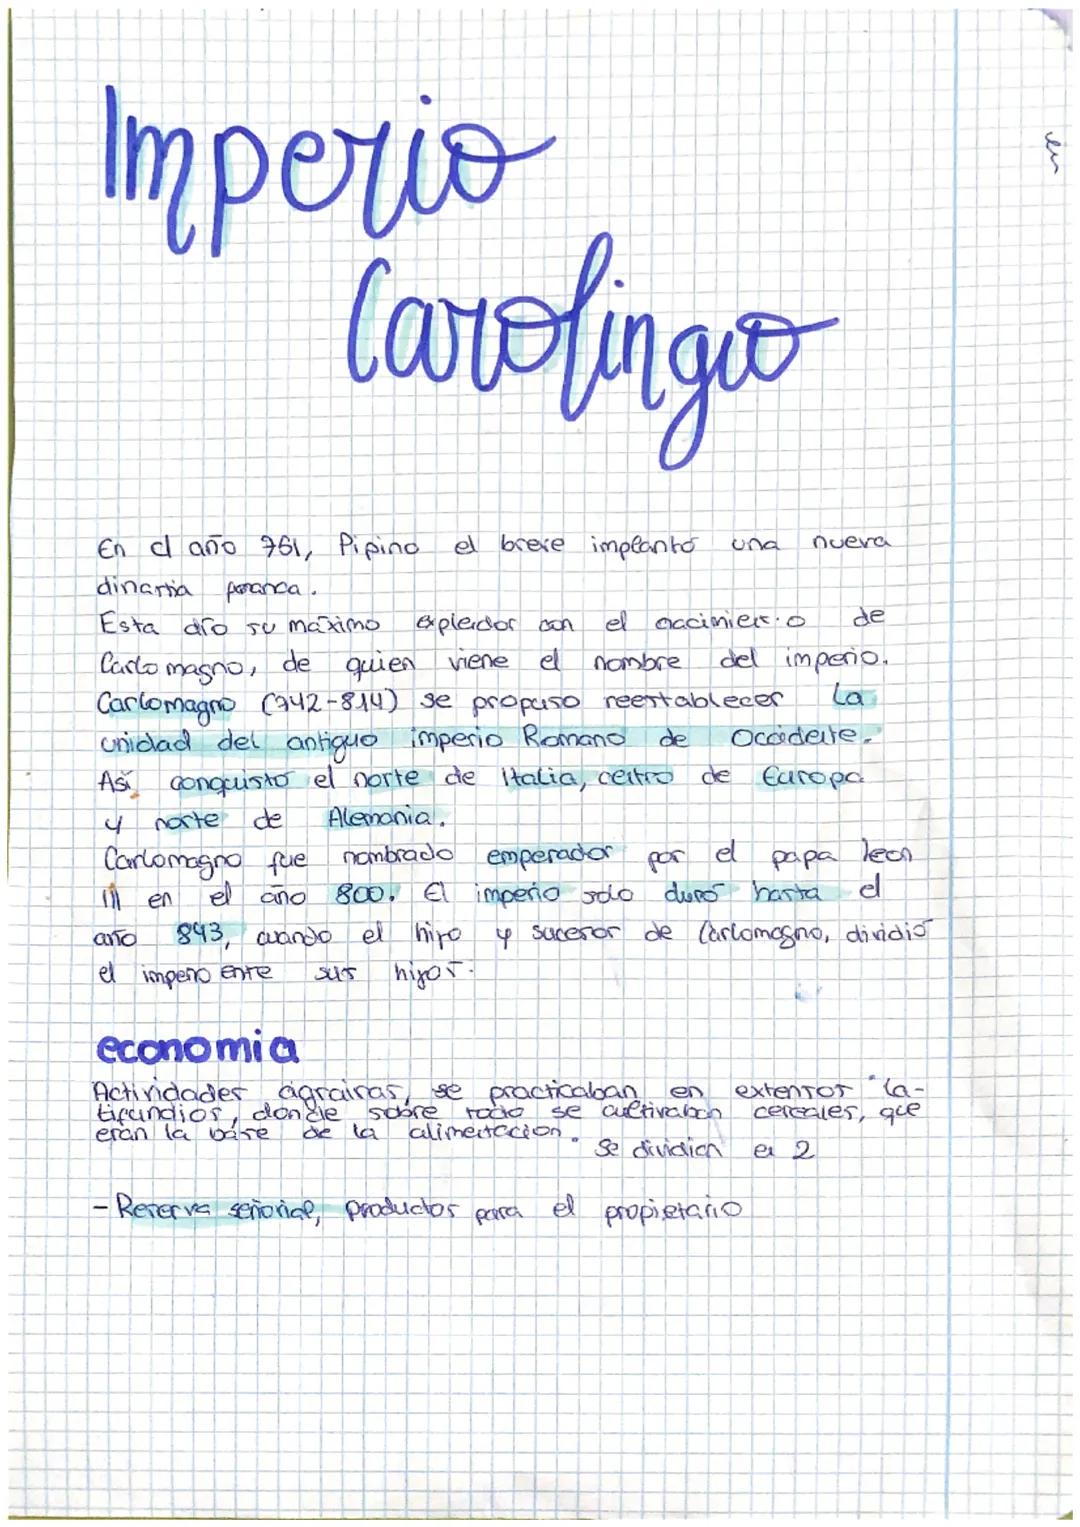 Imperio
Carolingio
En el año 751, Pipino el breve implantó una nueva
dinastia
Esta dio su máximo explendor con el de
Carlo magno, de quien viene el nombre del imperio.
Carlomagno (742-814) se propuso reestablecer la
unidad del antiguo imperio Romano de Occidente.
Así conquistó el norte de Italia, centro de Europa
y norte de Alemania.
Carlomagno fue nombrado emperador por el papa leon
III en el año 800. El imperio solo duró hasta el
año 843, cuando el hijo y sucesor de Carlomagno, dividió
el imperio entre sus hijos.
economia
Actividades agrairas, se practicaban en extensos "la-
tifundios, donde sobre todo se cultivaban cereales, que
eran la base de la alimentacion. Se dividian en 2
- Reserva señorial, productos para el propietario
en